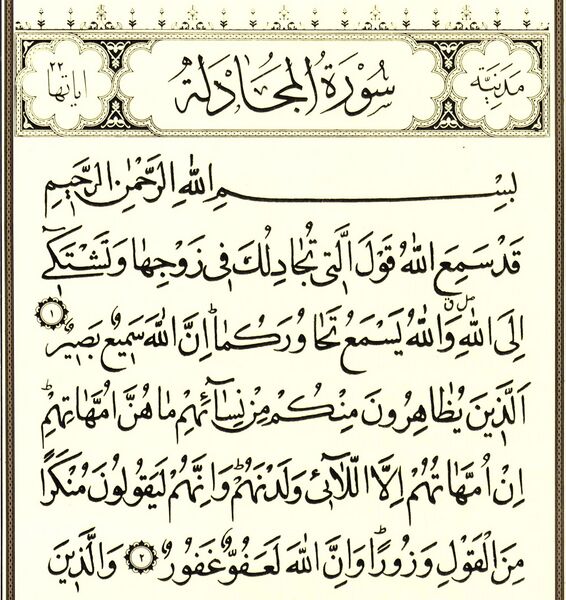 مَدَنِيَّة سُورَةُ الْمُجَادَلَةِ اٰيَاتُهَا ٢٢
بِسْمِ اللّٰهِ الرَّحْمٰنِ الرَّح۪يمِ
قَدْ سَمِعَ اللّٰهُ قَوْلَ الَّت۪ي تُجَادِلُكَ ف۪ي زَوْجِهَا وَتَشْتَك۪ٓي
اِلَى اللّٰهِ وَاللّٰهُ يَسْمَعُ تَحَاوُرَكُمَاۜ اِنَّ اللّٰهَ سَم۪يعٌ بَص۪يرٌ ١
اَلَّذ۪ينَ يُظَاهِرُونَ مِنْكُمْ مِنْ نِسَٓائِهِمْ مَا هُنَّ اُمَّهَاتِهِمْۜ
اِنْ اُمَّهَاتُهُمْ اِلَّا اللّٰٓائ۪ي وَلَدْنَهُمْۜ وَاِنَّهُمْ لَيَقُولُونَ مُنْكَرًا
مِنَ الْقَوْلِ وَزُورًاۜ وَاِنَّ اللّٰهَ لَعَفُوٌّ غَفُورٌ ٢ وَالَّذ۪ينَ